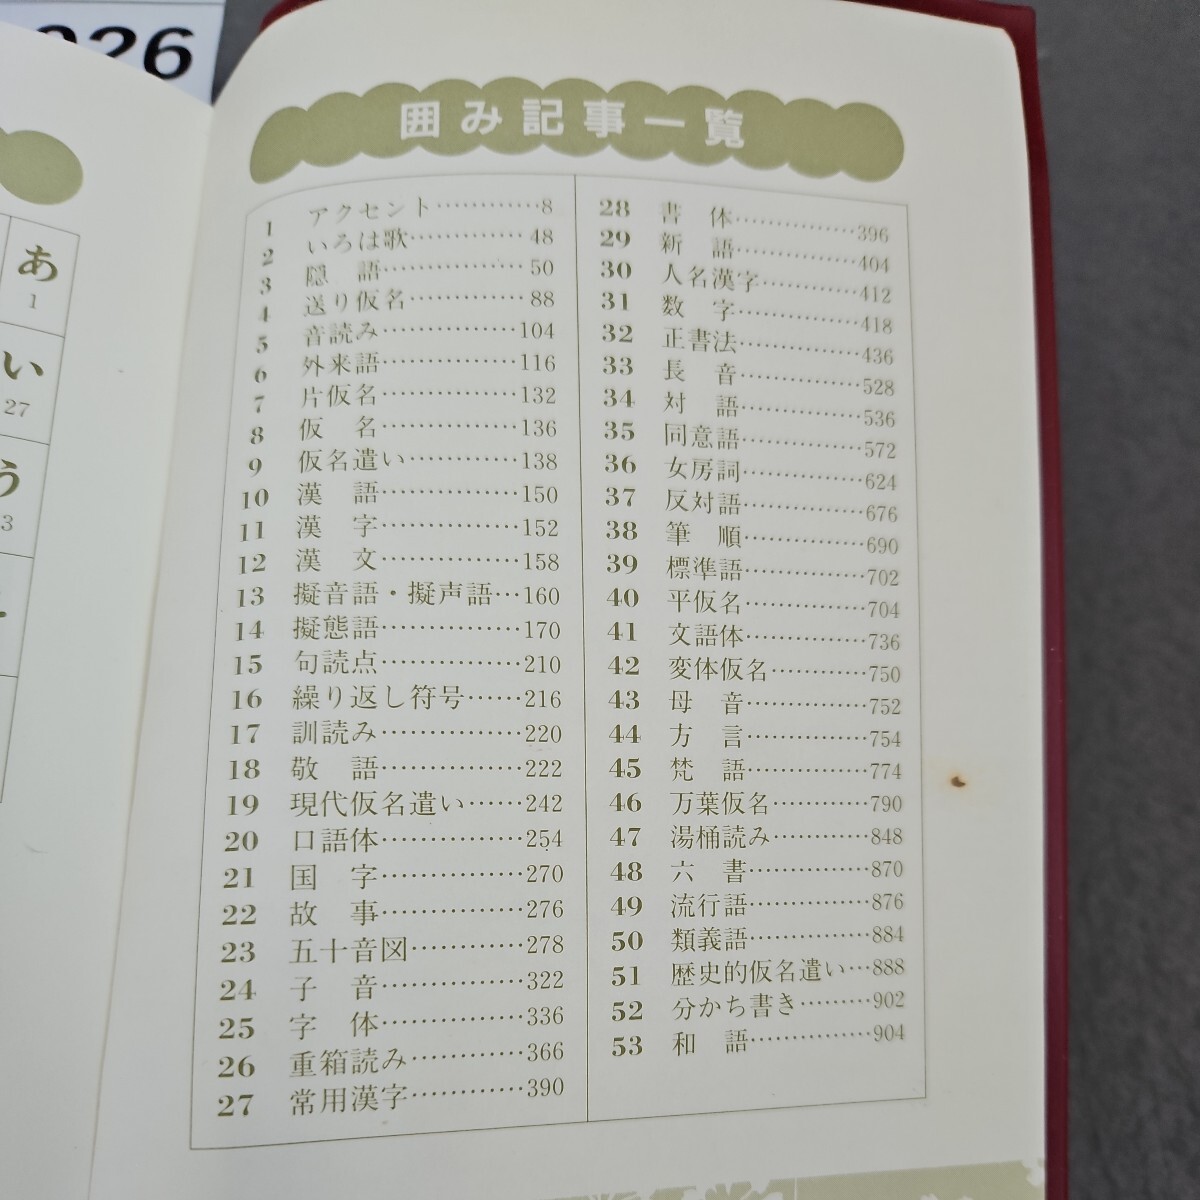 026
あ
1
い
27
う
3
囲み記事一覧
1 アクセント…………8
2 いろは歌…………48
3 隠語……………50
4 送り仮名…………88
5 音読み……………104
6 外来語……………116
7 片仮名……………132
8 仮名……………136
9 仮名遣い…………138
10 漢語……………150
11 漢字……………152
12 漢文……………158
13 擬音語・擬声語…160
14 擬態語……………170
15 句読点……………210
16 繰り返し符号……216
17 訓読み……………220
18 敬語……………222
19 現代仮名遣い……242
20 口語体……………254
21 国字……………270
22 故事……………276
23 五十音図…………278
24 子音……………322
25 字体……………336
26 重箱読み…………366
27 常用漢字…………390
28 書体……………396
29 新語……………404
30 人名漢字…………412
31 数字……………418
32 正書法……………436
33 長音……………528
34 対語……………536
35 同意語……………572
36 女房詞……………624
37 反対語……………676
38 筆順……………690
39 標準語……………702
40 平仮名……………704
41 文語体……………736
42 変体仮名…………750
43 母音……………752
44 方言……………754
45 梵語……………774
46 万葉仮名…………790
47 湯桶読み…………848
48 六書……………870
49 流行語……………876
50 類義語……………884
51 歴史的仮名遣い…888
52 分かち書き………902
53 和語……………904